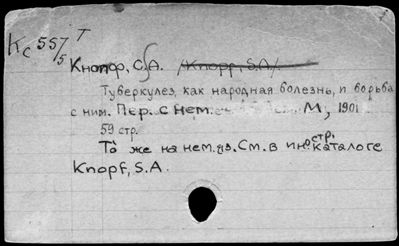 Кс 557/5 Т
Кнопф, С.А. /Knopf, S.A./
Туберкулез, как народная болезнь, и борьба
с ним. Пер. с нем. М, 1901
59 стр.
То же на нем. яз. См. в иностр. каталоге
Knopf, S.A.